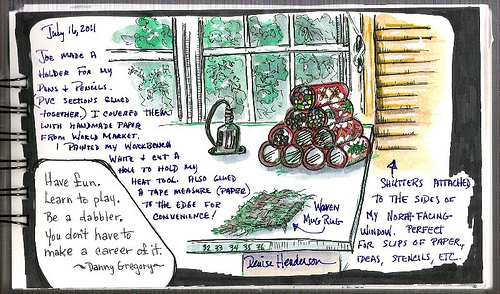 July 16, 2011
Joe made a
holder for my
pens & pencils.
PVC sections glued
together.) I covered them
with handmade paper
from World Market.
I painted my workbench
white & cut a
hole to hold my
heat tool. Also glued
a tape measure (paper)
to the edge for
convenience!
Have fun.
Learn to play.
Be a dabbler.
You don't have to
make a career of it.
~Danny Gregory~
Woven
Mug Rug
32 33 34 35 36
Denise Henderson
Shutters attached
to the sides of
my north-facing
window. Perfect
for slips of paper,
ideas, stencils, etc.